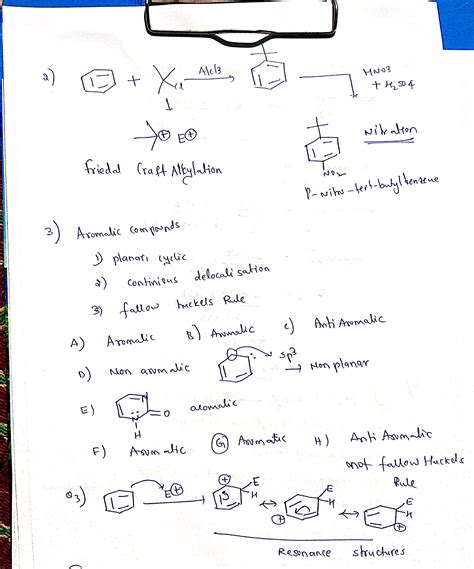 2) + Cl Alcl3 HNO3
+ H2SO4
⊕ E⊕ Nitration
friedal Craft Alkylation NO2
P-nitro-tert-butyl benzene
3) Aromatic compounds
1) planar, cyclic
2) continious delocalisation
3) fallow huckels Rule
A) Aromatic B) Aromatic C) Anti Aromatic
D) Non aromatic sp3 → Non planar
E) N H =O aromatic
F) Aromatic G Aromatic H) Anti Aromatic
not fallow Huckels
Rule
3) E⊕ ⊕ E H ↔ ⊕ E H ↔ E H ⊕
Resonance structures